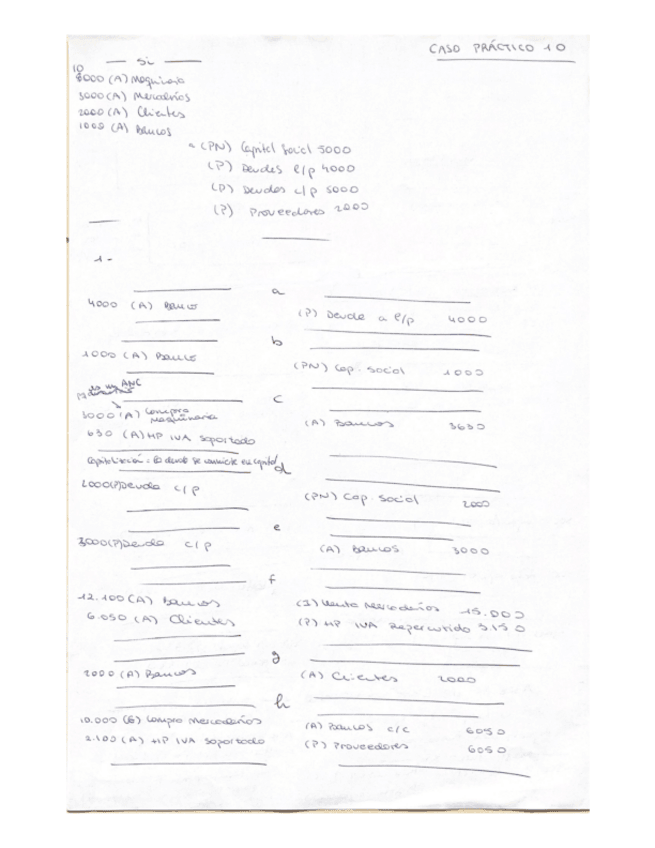 CASO PRÁCTICO 10
Si
10
8000 (A) Maquinaria
3000 (A) Mercaderías
2000 (A) Clientes
1000 (A) Bancos
a (PN) Capital Social 5000
(P) Deudas l/p 4000
(P) Deudas c/p 5000
(P) Proveedores 2000
1-
a
4000 (A) Banco
(P) Deuda a l/p 4000
b
1000 (A) Banco
(PN) Cap. Social 1000
ANC
c
3000 (A) Compra maquinaria
(A) Bancos 3630
630 (A) HP IVA Soportado
Capitalización: la deuda se convierte en capital
d
2000 (P) Deuda c/p
(PN) Cap. Social 2000
e
3000 (P) Deuda c/p
(A) Bancos 3000
f
12.100 (A) Bancos
(I) Venta Mercaderías 15.000
6.050 (A) Clientes
(P) HP IVA Repercutido 3150
g
2000 (A) Bancos
(A) Clientes 2000
h
10.000 (G) Compra Mercaderías
(A) Bancos c/c 6050
2.100 (A) HP IVA Soportado
(P) Proveedores 6050